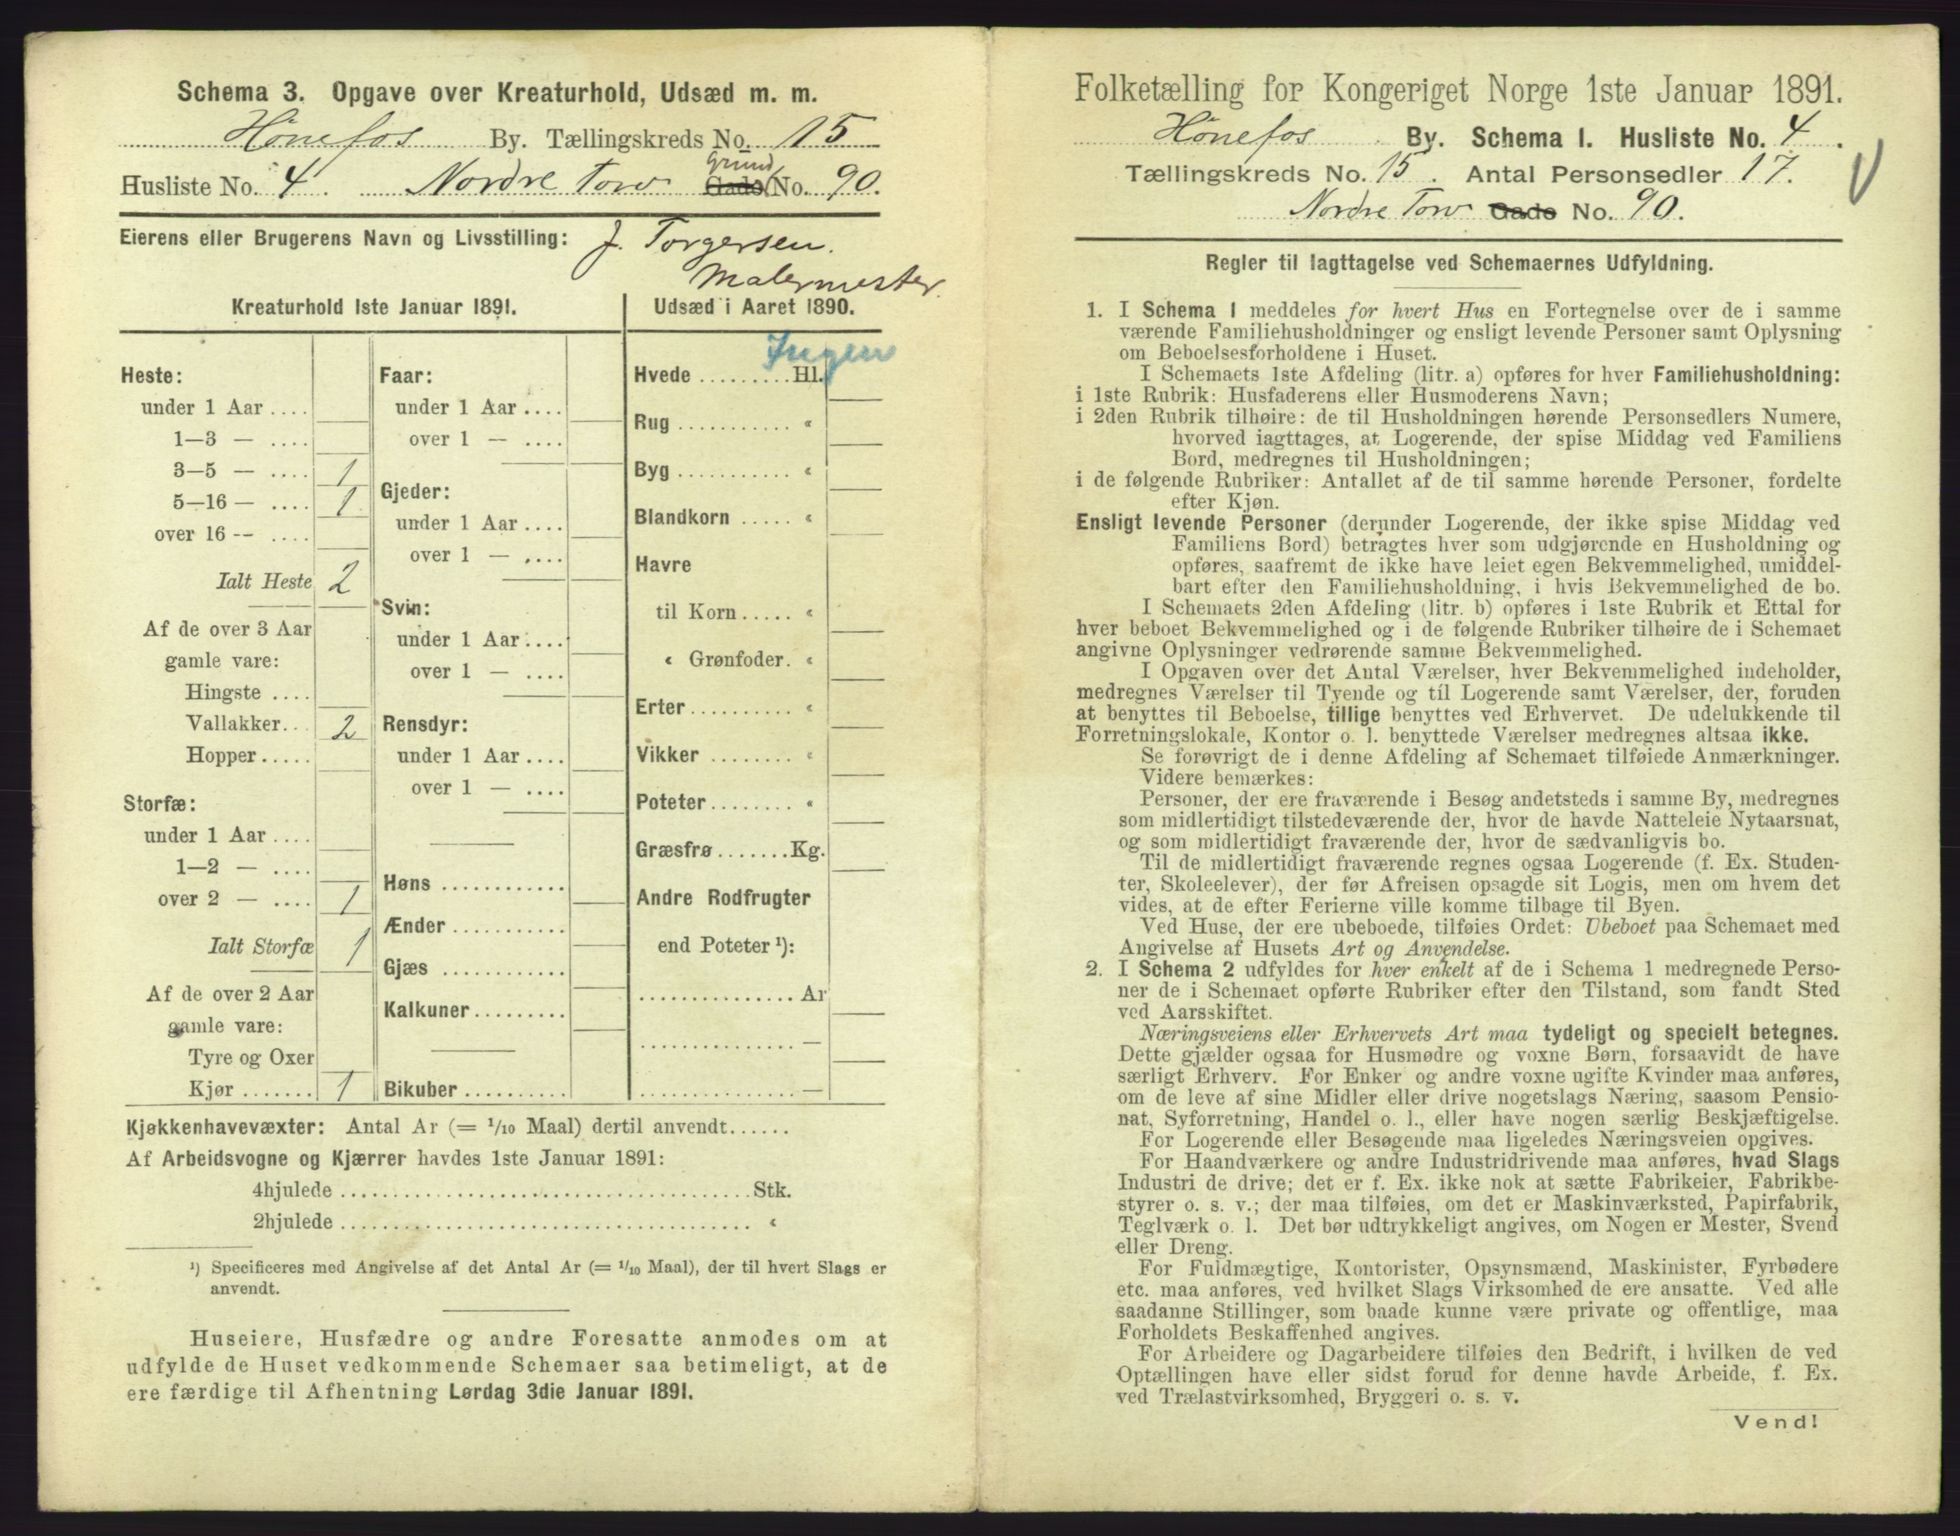 Schema 3. Opgave over Kreaturhold, Udsæd m. m.
Hønefos By. Tællingskreds No. 15
Grund
Husliste No. 4. Nordre Torv Gade No. 90.
Eierens eller Brugerens Navn og Livsstilling: J. Torgersen.
Malermester.
Kreaturhold 1ste Januar 1891.
Heste:
under 1 Aar ....
1—3 — ....
3—5 — .... 1
5—16 — .... 1
over 16 -- ....
Ialt Heste 2
Af de over 3 Aar
gamle vare:
Hingste ....
Vallakker... 2
Hopper.....
Storfæ:
under 1 Aar ....
1—2 — ....
over 2 — .... 1
Ialt Storfæ 1
Af de over 2 Aar
gamle vare:
Tyre og Oxer
Kjør ....... 1
Faar:
under 1 Aar ....
over 1 — ....
Gjeder:
under 1 Aar ....
over 1 — ....
Svin:
under 1 Aar ....
over 1 — ....
Rensdyr:
under 1 Aar ....
over 1 — ....
Høns ............
Ænder ...........
Gjæs ............
Kalkuner.........
Bikuber ..........
Udsæd i Aaret 1890.
Ingen
Hvede .........Hl.
Rug ........... «
Byg ........... «
Blandkorn ..... «
Havre
til Korn ..... «
« Grønfoder. «
Erter.......... «
Vikker ........ «
Poteter........ «
Græsfrø.......Kg.
Andre Rodfrugter
end Poteter ¹):
...............Ar
............... —
............... —
Kjøkkenhavevæxter: Antal Ar (= 1/10 Maal) dertil anvendt......
Af Arbeidsvogne og Kjærrer havdes 1ste Januar 1891:
4hjulede ........................................Stk.
2hjulede ........................................ «
¹) Specificeres med Angivelse af det Antal Ar (= 1/10 Maal), der til hvert Slags er
anvendt.
Huseiere, Husfædre og andre Foresatte anmodes om at
udfylde de Huset vedkommende Schemaer saa betimeligt, at de
ere færdige til Afhentning Lørdag 3die Januar 1891.
Folketælling for Kongeriget Norge 1ste Januar 1891.
Hønefos By. Schema I. Husliste No. 4.
Tællingskreds No. 15. Antal Personsedler 17.
Nordre Torv Gade No. 90.
Regler til Iagttagelse ved Schemaernes Udfyldning.
1. I Schema 1 meddeles for hvert Hus en Fortegnelse over de i samme
værende Familiehusholdninger og ensligt levende Personer samt Oplysning
om Beboelsesforholdene i Huset.
I Schemaets 1ste Afdeling (litr. a) opføres for hver Familiehusholdning:
i 1ste Rubrik: Husfaderens eller Husmoderens Navn;
i 2den Rubrik tilhøire: de til Husholdningen hørende Personsedlers Numere,
hvorved iagttages, at Logerende, der spise Middag ved Familiens
Bord, medregnes til Husholdningen;
i de følgende Rubriker: Antallet af de til samme hørende Personer, fordelte
efter Kjøn.
Ensligt levende Personer (derunder Logerende, der ikke spise Middag ved
Familiens Bord) betragtes hver som udgjørende en Husholdning og
opføres, saafremt de ikke have leiet egen Bekvemmelighed, umiddel-
bart efter den Familiehusholdning, i hvis Bekvemmelighed de bo.
I Schemaets 2den Afdeling (litr. b) opføres i 1ste Rubrik et Ettal for
hver beboet Bekvemmelighed og i de følgende Rubriker tilhøire de i Schemaet
angivne Oplysninger vedrørende samme Bekvemmelighed.
I Opgaven over det Antal Værelser, hver Bekvemmelighed indeholder,
medregnes Værelser til Tyende og til Logerende samt Værelser, der, foruden
at benyttes til Beboelse, tillige benyttes ved Erhvervet. De udelukkende til
Forretningslokale, Kontor o. l. benyttede Værelser medregnes altsaa ikke.
Se forøvrigt de i denne Afdeling af Schemaet tilføiede Anmærkninger.
Videre bemærkes:
Personer, der ere fraværende i Besøg andetsteds i samme By, medregnes
som midlertidigt tilstedeværende der, hvor de havde Natteleie Nytaarsnat,
og som midlertidigt fraværende der, hvor de sædvanligvis bo.
Til de midlertidigt fraværende regnes ogsaa Logerende (f. Ex. Studen-
ter, Skoleelever), der før Afreisen opsagde sit Logis, men om hvem det
vides, at de efter Ferierne ville komme tilbage til Byen.
Ved Huse, der ere ubeboede, tilføies Ordet: Ubeboet paa Schemaet med
Angivelse af Husets Art og Anvendelse.
2. I Schema 2 udfyldes for hver enkelt af de i Schema 1 medregnede Perso-
ner de i Schemaet opførte Rubriker efter den Tilstand, som fandt Sted
ved Aarsskiftet.
Næringsveiens eller Erhvervets Art maa tydeligt og specielt betegnes.
Dette gjælder ogsaa for Husmødre og voxne Børn, forsaavidt de have
særligt Erhverv. For Enker og andre voxne ugifte Kvinder maa anføres,
om de leve af sine Midler eller drive nogetslags Næring, saasom Pensio-
nat, Syforretning, Handel o. l., eller have nogen særlig Beskjæftigelse.
For Logerende eller Besøgende maa ligeledes Næringsveien opgives.
For Haandværkere og andre Industridrivende maa anføres, hvad Slags
Industri de drive; det er f. Ex. ikke nok at sætte Fabrikeier, Fabrikbe-
styrer o. s. v.; der maa tilføies, om det er Maskinværksted, Papirfabrik,
Teglværk o. l. Det bør udtrykkeligt angives, om Nogen er Mester, Svend
eller Dreng.
For Fuldmægtige, Kontorister, Opsynsmænd, Maskinister, Fyrbødere
etc. maa anføres, ved hvilket Slags Virksomhed de ere ansatte. Ved alle
saadanne Stillinger, som baade kunne være private og offentlige, maa
Forholdets Beskaffenhed angives.
For Arbeidere og Dagarbeidere tilføies den Bedrift, i hvilken de ved
Optællingen have eller sidst forud for denne havde Arbeide, f. Ex.
ved Trælastvirksomhed, Bryggeri o. s. v.
Vend!